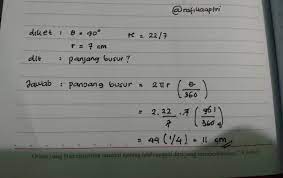 @rafikaaptri
diket : θ = 90° π = 22/7
r = 7 cm
dit : panjang busur ?
Jawab : panjang busur = 2πr (θ/360)
= 2. 22/7 . 7 (90/360)
= 44 (1/4) = 11 cm